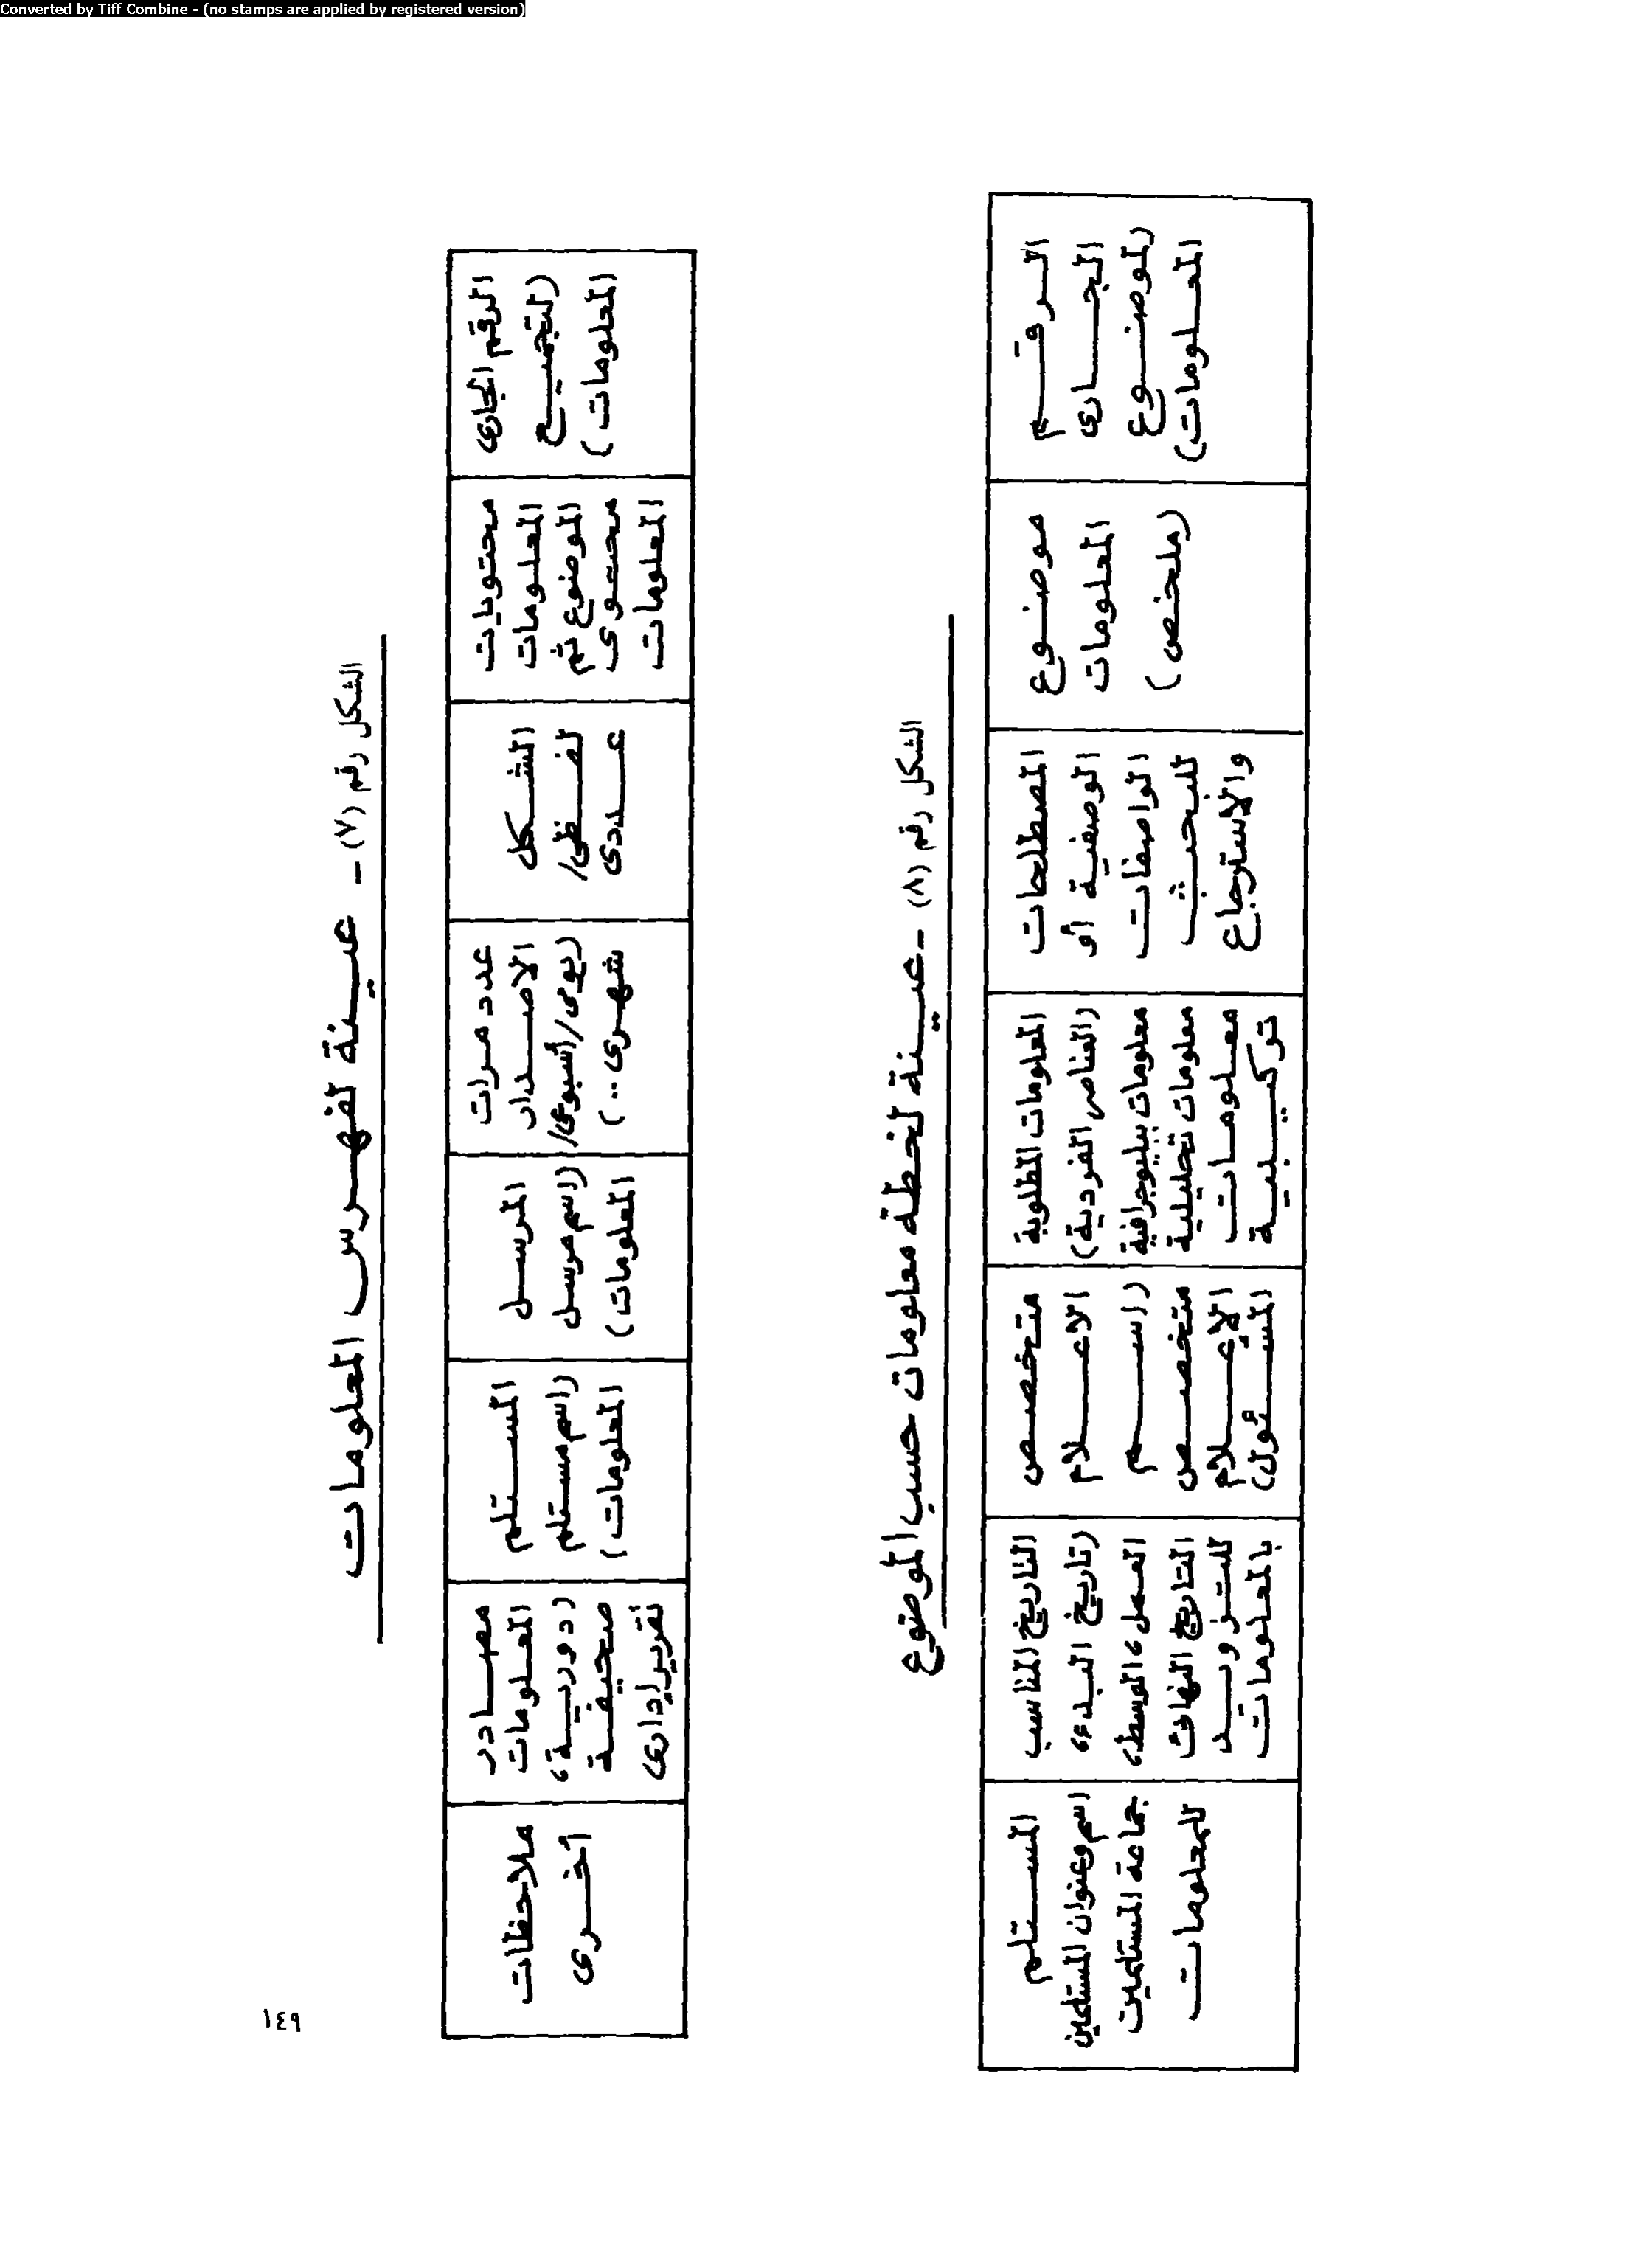 Converted by Tiff Combine - (no stamps are applied by registered version)
الشكل رقم (٧) - عينة لفهرس المعلومات
الرقم الجارى
(لتجميع
المعلومات)
محتويات
المعلومات
الموضوع ثم
محتوى
المعلومات
الشكل
لفظى/
عددى
عدد مرات
الاصدار
(يومى/أسبوعى/
شهرى..)
المرسل
(اسم مرسل
المعلومات)
المستلم
(اسم مستلم
المعلومات)
مصادر
المعلومات
(دورية،
صحيفة
تقرير إدارى
ملاحظات
أخرى
الشكل رقم (٨) - عينة لخطة معلومات حسب الموضوع
الرقم
الجارى
(لموضوع
المعلومات)
موضوع
المعلومات
(ملخص)
المصطلحات
الوصفية أو
الواصفات
للبحث
والاسترجاع
المعلومات المطلوبة
(العناصر الفردية)
معلومات ببليوجرافية
معلومات تحليلية
معلومات
تركيبية
متخصص
الاعلام
(اسم
متخصص
الإعلام
المسئول)
التاريخ المناسب
(تاريخ البدء،
العمل، الوسط،
التاريخ النهائى
للتزويد
بالمعلومات
المستلم
اسم وعنوان المستلمين
جماعة المستلمين
للمعلومات
١٤٩